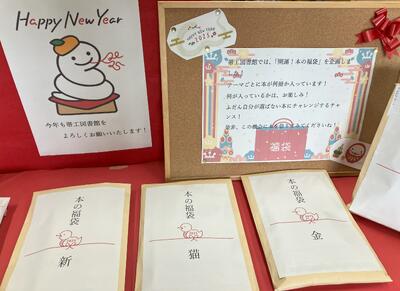 Happy New Year
今年も帯工図書館を
よろしくお願いいたします!
HAPPY NEW YEAR
2025
帯工図書館では、「開運!本の福袋」を企画しま
した!
テーマごとに本が何冊か入っています!
何が入っているかは、お楽しみ!
ふだん自分が選ばない本にチャレンジするチャ
ンス!
是非、この機会に
みてくださいね!
福袋
本の福袋
新
本の福袋
猫
本の福袋
金